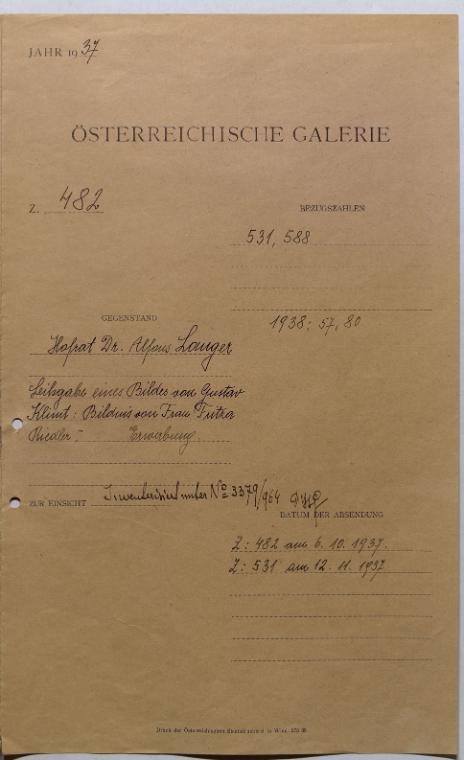 JAHR 1937
ÖSTERREICHISCHE GALERIE
Z. 482
BEZUGSZAHLEN
531, 588
1938: 57, 80
GEGENSTAND
Hofrat Dr. Alfons Langer
Leihgabe eines Bildes von Gustav
Klimt: Bildnis von Frau Fritza
Riedler - Erwerbung.
ZUR EINSICHT Inventarisiert unter No 3379/964
DATUM DER ABSENDUNG
Z: 482 am 6. 10. 1937.
Z: 531 am 12. 11. 1937
Druck der Österreichischen Staatsdruckerei in Wien.